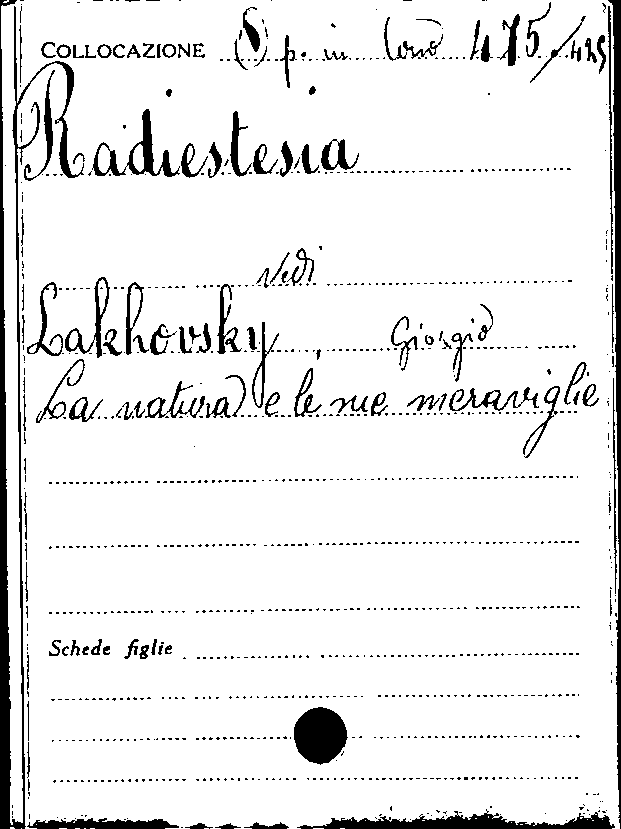 COLLOCAZIONE Op. in corso 475/425
Radiestesia
vedi
Lakhovsky, Giorgio
La natura e le sue meraviglie
Schede figlie